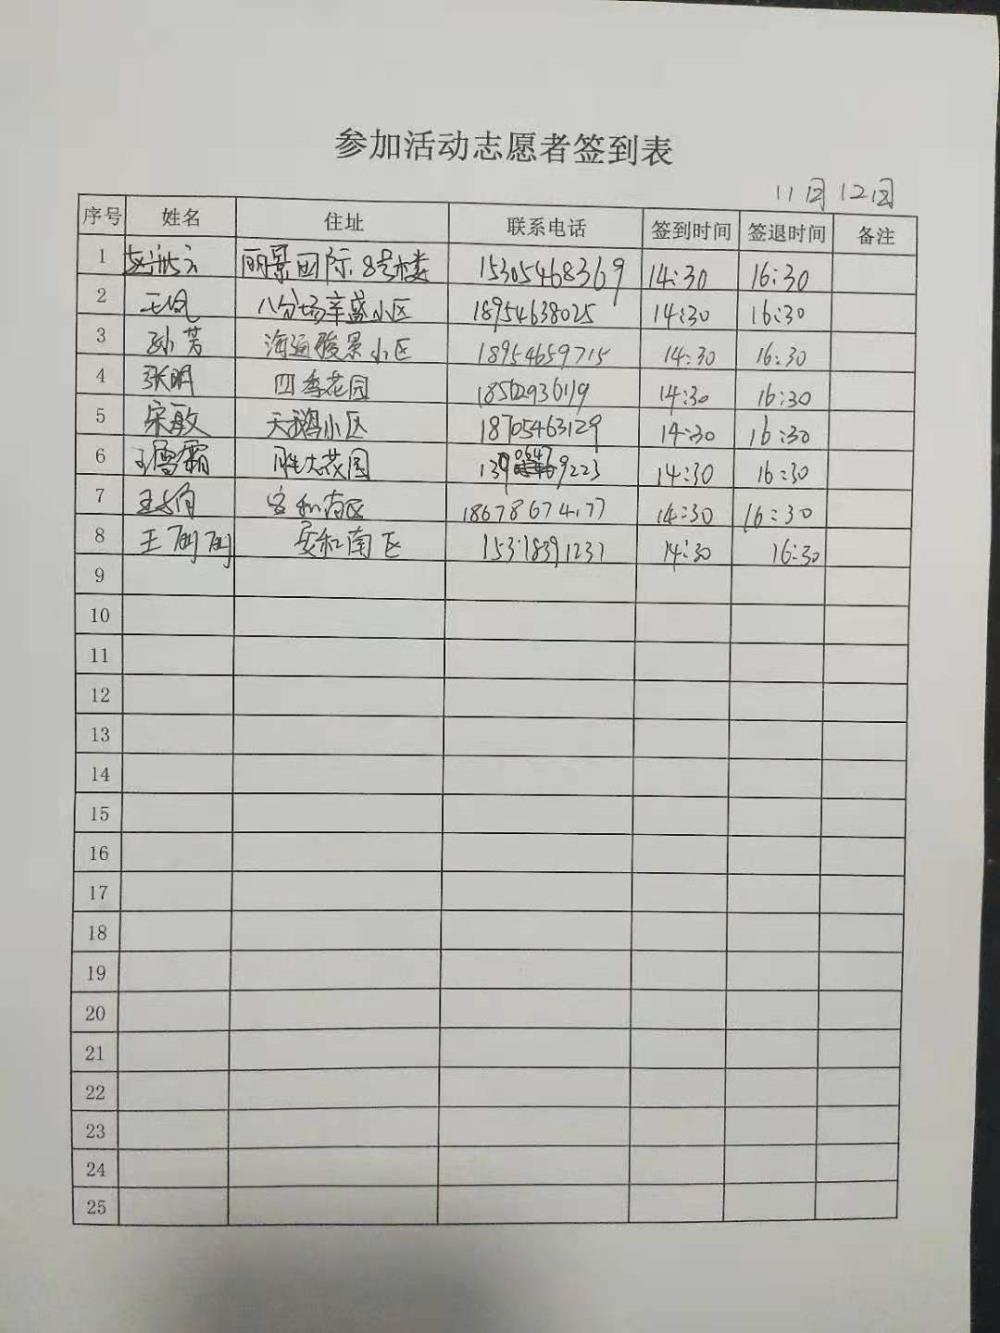 参加活动志愿者签到表
11月12日
序号 姓名 住址 联系电话 签到时间 签退时间 备注
1 丽景国际8号楼 15305468369 14:30 16:30
2 王凤 八分场辛盛小区 18954638025 14:30 16:30
3 孙芳 海通骏景小区 18954659715 14:30 16:30
4 张明 四季花园 14:30 16:30
5 宋敏 天鹅小区 18705463129 14:30 16:30
6 王雪霜 胜大花园 13906479223 14:30 16:30
7 区 18678674177 14:30 16:30
8 王丽丽 安和南区 15318391231 14:30 16:30
9
10
11
12
13
14
15
16
17
18
19
20
21
22
23
24
25